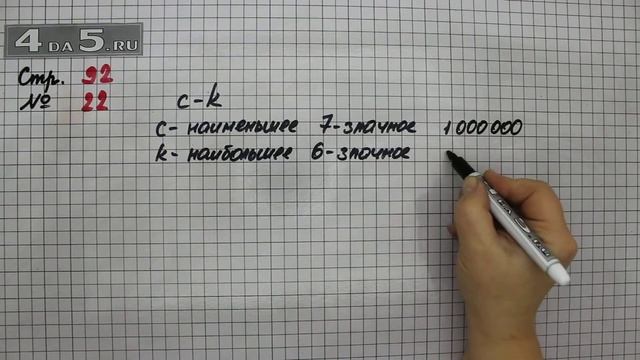 4DA5.RU
Стр. 92
№ 22
c-k
c- наименьшее 7-значное 1 000 000
k- наибольшее 6-значное